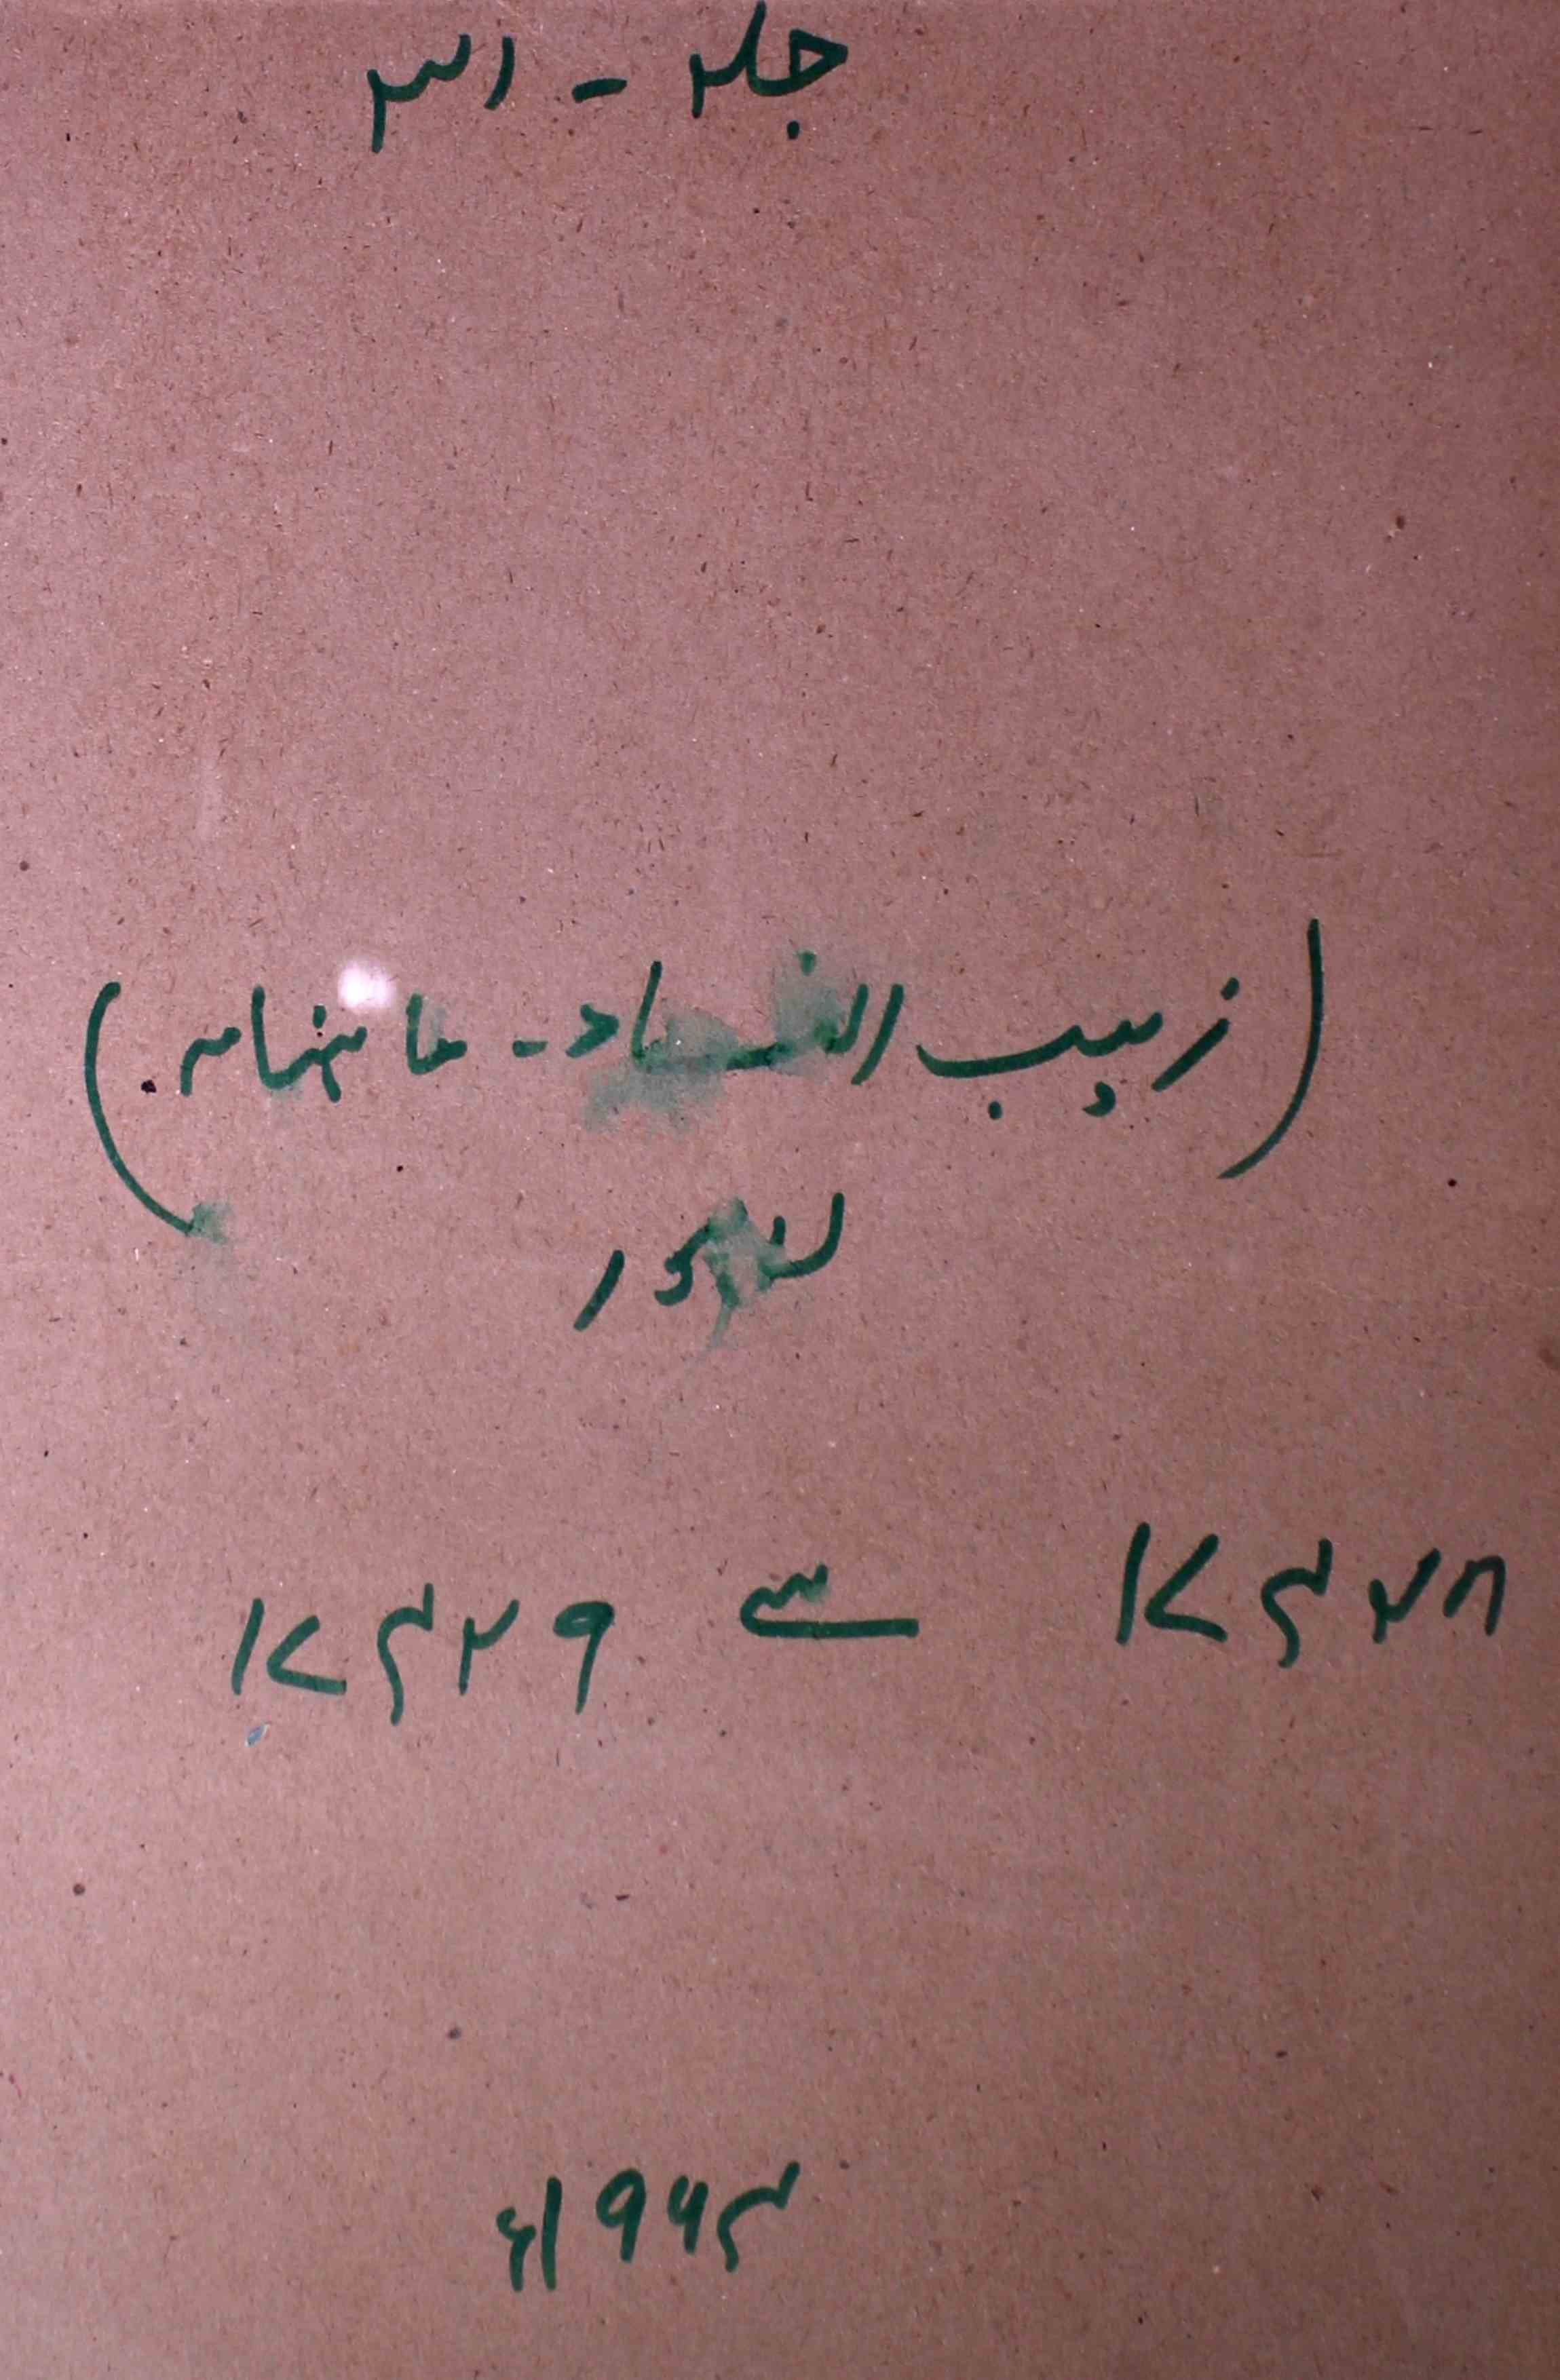 جلد - ۳۱
(زیب النساء - ماہنامہ)
لاہور
۱۷۴۲۸ سے ۱۷۴۲۹
۱۹۶۴ء